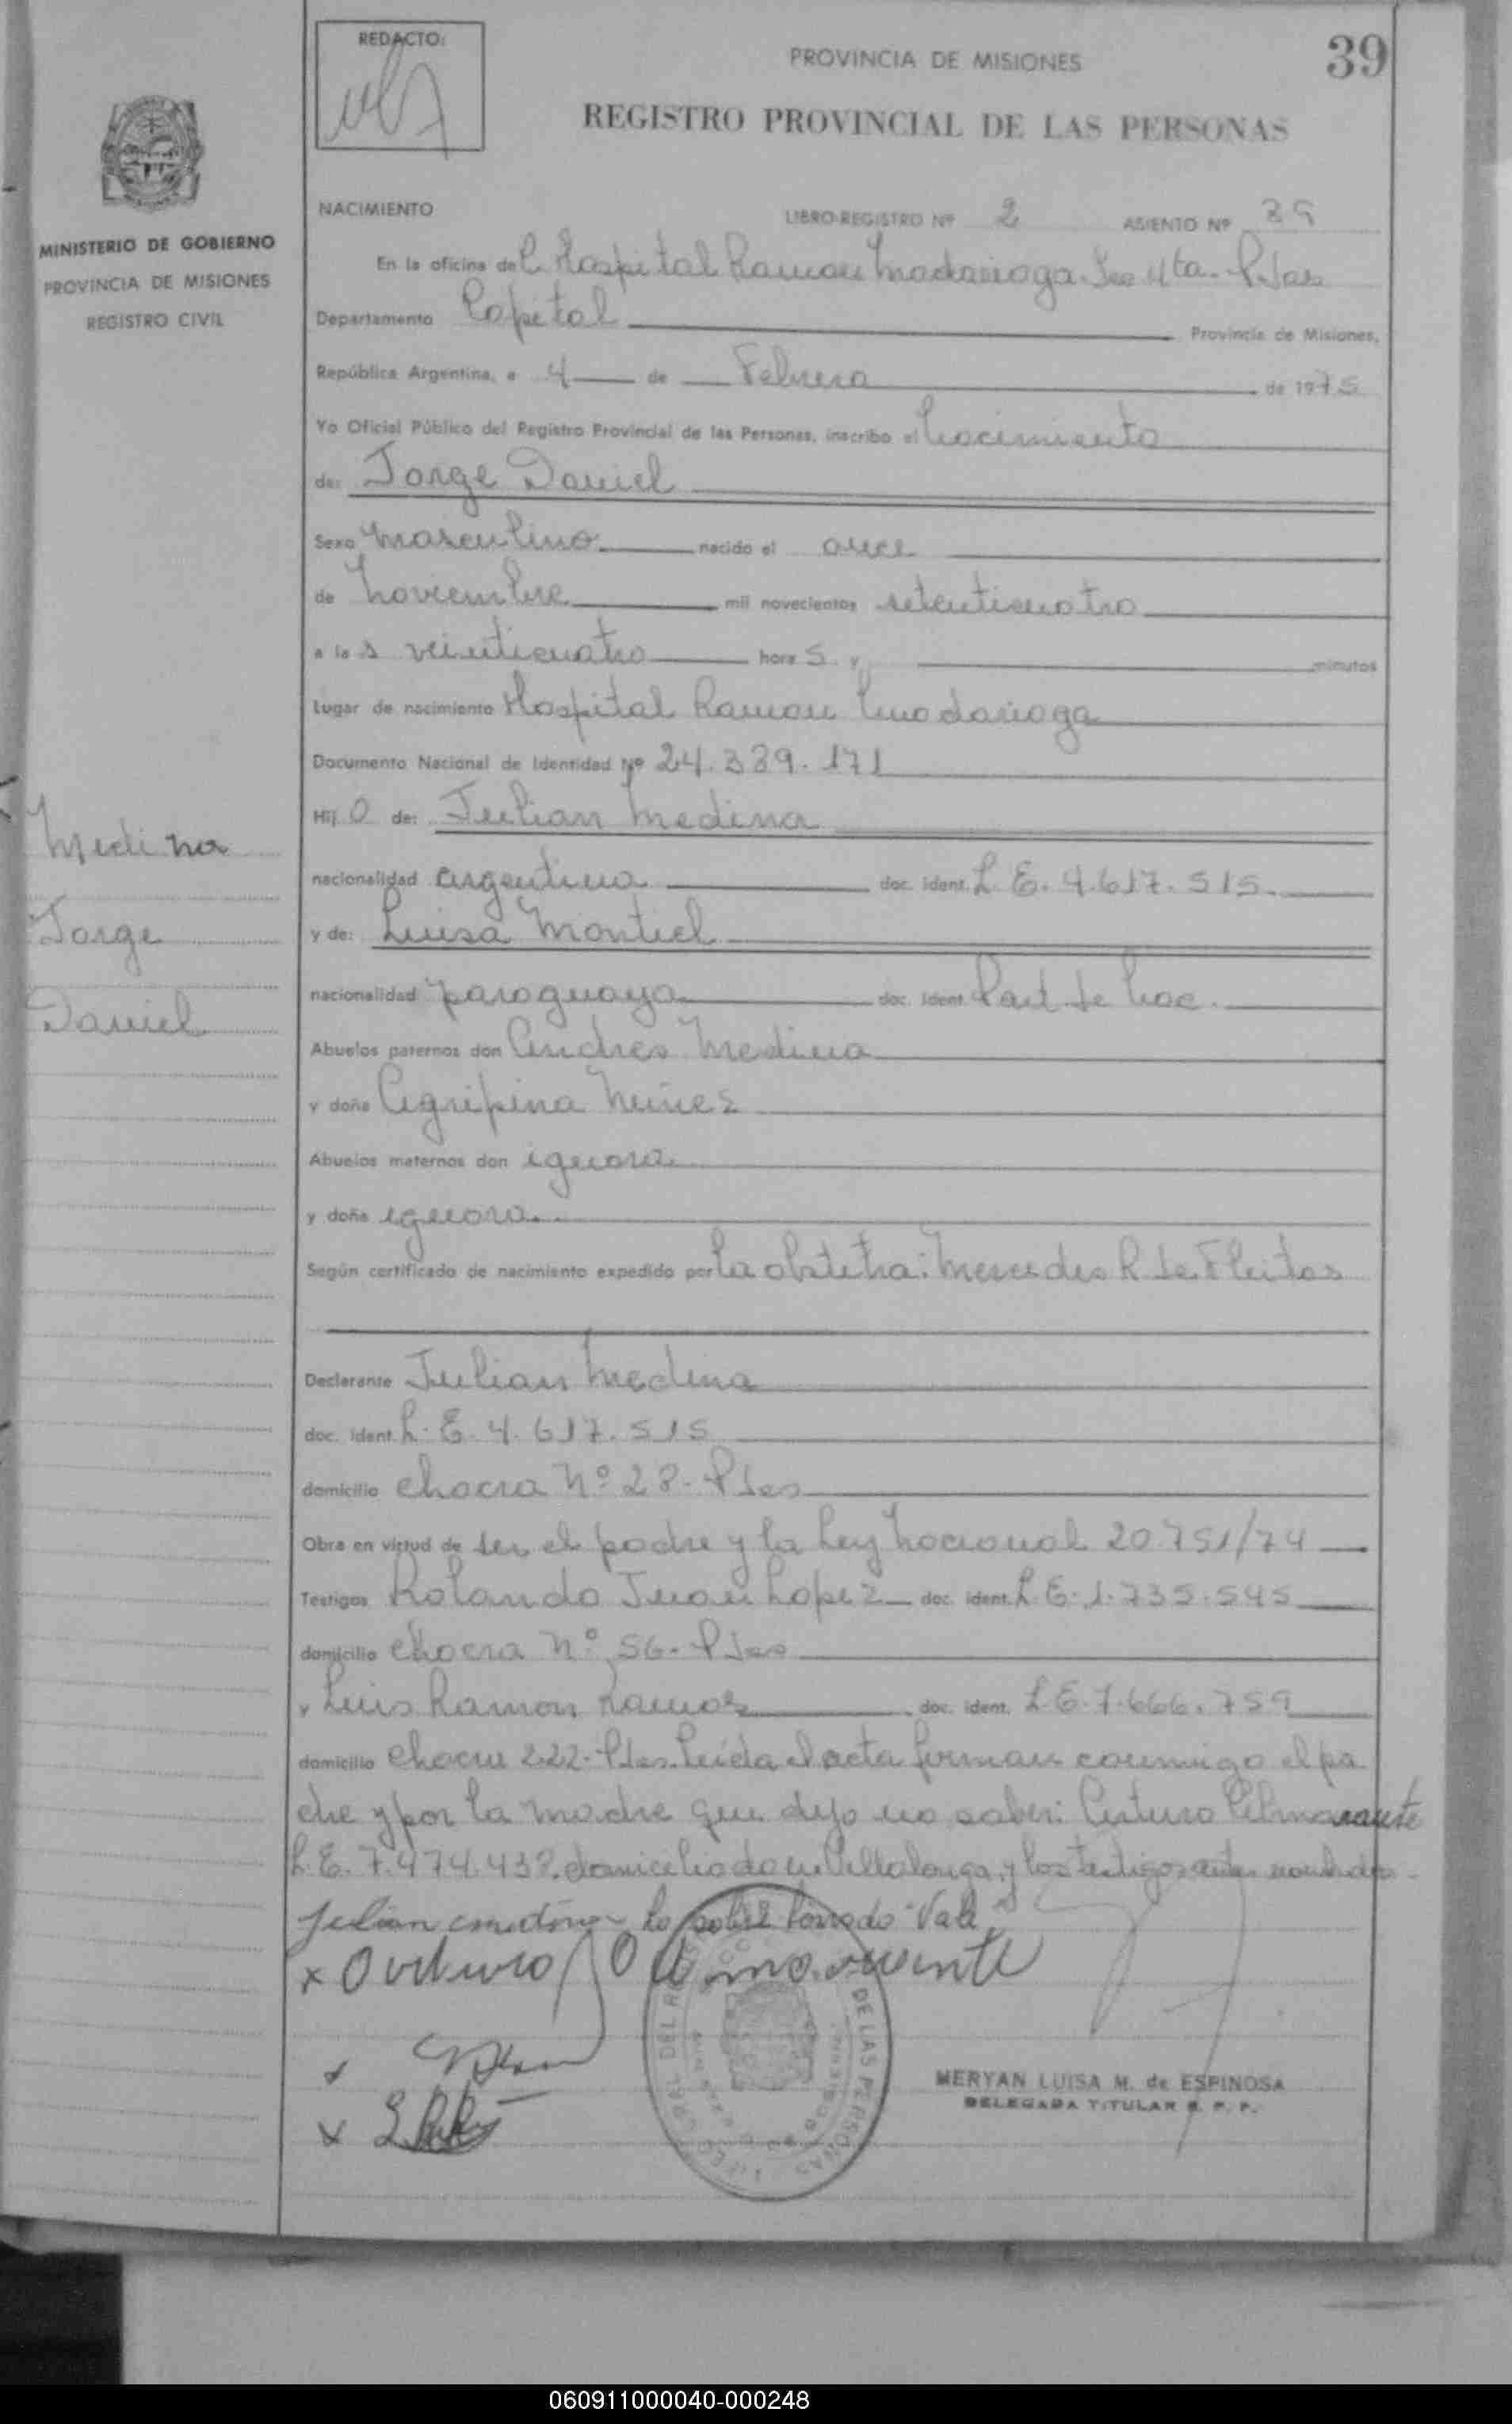 REDACTO:
PROVINCIA DE MISIONES
39
REGISTRO PROVINCIAL DE LAS PERSONAS
MINISTERIO DE GOBIERNO
PROVINCIA DE MISIONES
REGISTRO CIVIL
NACIMIENTO
LIBRO-REGISTRO Nº 2 ASIENTO Nº 39
En la oficina del Hospital Ramon Madariaga Sec 4ta. Pdas
Departamento Capital Provincia de Misiones,
República Argentina, a 4 de Febrero de 1975
Yo Oficial Público del Registro Provincial de las Personas, inscribo el Nacimiento
de: Jorge Daniel
Sexo Masculino nacido el once
de Noviembre mil novecientos setenticuatro
a las veinticuatro horas y minutos
Lugar de nacimiento Hospital Ramon Madariaga
Documento Nacional de Identidad Nº 24.339.171
Hijo de: Julian Medina
nacionalidad argentina doc. ident. L.E. 4.617.515
Medina
Jorge
Daniel
y de: Luisa Montiel
nacionalidad paraguaya doc. ident. Part de Nac.
Abuelos paternos don Andres Medina
y doña Agripina Nuñez
Abuelos maternos don ignora
y doña ignora
Según certificado de nacimiento expedido por la obstetra: Mercedes R de Fleitas
Declarante Julian Medina
doc. ident. L.E. 4.617.515
domicilio chacra Nº 28- Pdas
Obra en virtud de ser el padre y la Ley Nacional 20.751/74
Testigos Rolando Juan Lopez doc. ident. L.E. 1.735.545
domicilio chacra Nº 56- Pdas
y Luis Ramon Ramos doc. ident. L.E. 7.666.759
domicilio chacra 222- Pdas. Leida el acta firman conmigo el pa
dre y por la madre que dijo no saber: Arturo Almarante
L.E. 7.474.438. domiciliado en Villalonga y los testigos antes nombrados-
Lo sobre borrado "Vale"
DE LAS PERSONAS
MERYAN LUISA M. de ESPINOSA
DELEGADA TITULAR R. P. P.
060911000040-000248